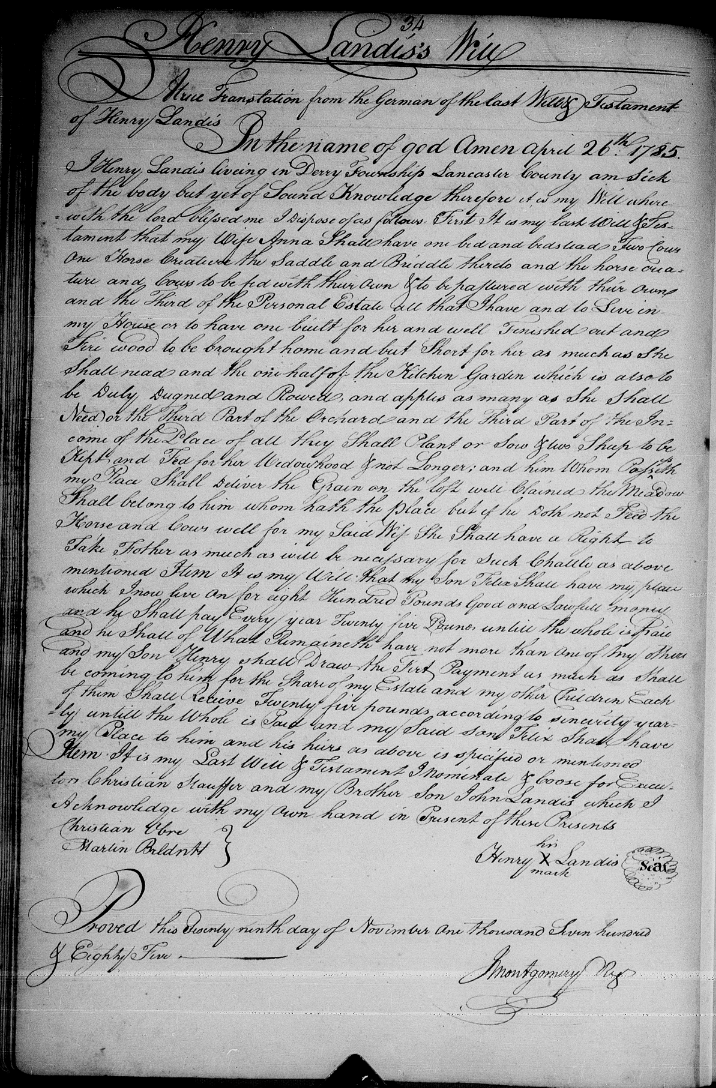 34
Henry Landis's Will
A true Translation from the German of the last Will & Testament
of Henry Landis
In the name of god Amen April 26th 1785.
I Henry Landis liveing in Derry Township Lancaster County am Sick
of the body but yet of Sound Knowledge therefore it is my Will where
with the lord blessed me I Dispose of as follows. First It is my last Will & Tes-
tament that my Wife Anna Shall have one bed and bedstead Two Cows
One Horse Creature the Saddle and Briddle thereto and the horse crea-
ture and Cows to be fed with their Own & to be pastured with their own
and the Third of the Personal Estate all that I have and to Live in
my House or to have one built for her and well Finished out and
Fire wood to be brought home and but Short for her as much as She
Shall need and the one half of the Kitchen Garden which is also to
be Duly Dugned and Plowed and apples as many as She Shall
Need or the Third Part of the Orchard and the Third Part of the In-
come of the Place of all they Shall Plant or Sow & two Sheep to be
Kept and Fed for her Wedowhood & not Longer; and him Whom Posseth
my Place Shall Deliver the Grain on the loft well Cleaned the Meadow
Shall belong to him whom hath the place but if he Doth not Feed the
Horse and Cows well for my Said Wife She Shall have a Right to
Take Fother as much as will be necessary for Such Chattle as above
mentioned Item It is my Will that my Son Felix Shall have my place
which I now live on for eight Hundred Pounds Good and Lawfull money
and he Shall pay Every year Twenty five Pounds untill the whole is Paid
and he Shall of What Remaineth have not more than one of my others
and my Son Henry Shall Draw the First Payment as much as Shall
be coming to him for the Share of my Estate and my other Children Each
of them Shall Recieve Twenty five pounds according to sincerity year-
by untill the Whole is Paid and my Said Son Felix Shall have
my Place to him and his heirs as above is spicified or mentioned
Item It is my Last Will & Testament I nominate & Coose for Execu-
tors Christian Stauffer and my Brother Son John Landis which I
Acknowledge with my own hand in Present of these Presents
Christian
Martin
his
Henry X Landis
mark
Seal
Proved this Twenty ninth day of November One thousand Seven hundred
& Eighty Five
J Montgomery Reg